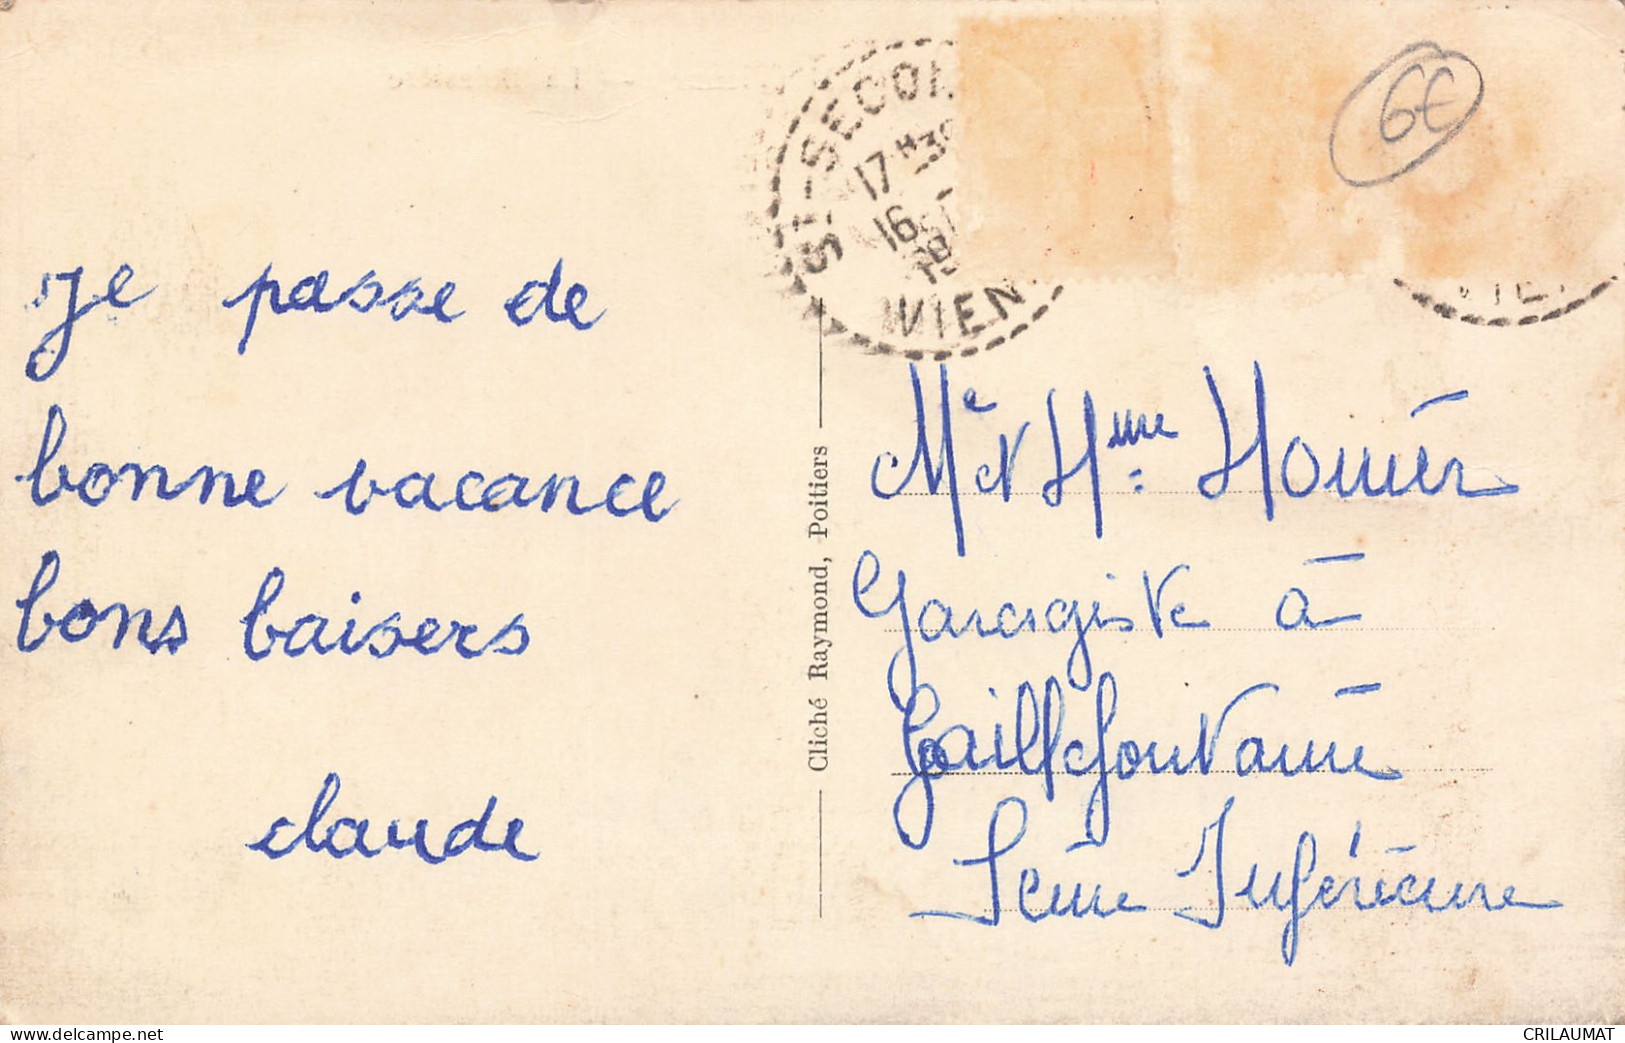 je passe de
bonne vacance
bons baisers
claude
Cliché Raymond, Poitiers
ST-SECON
17H30
16
19
VIEN
6€
Me et Mme
Garagiste à
Gaillefontaine
Seine Inférieure
https://www.delcampe.net
CRILAUMAT